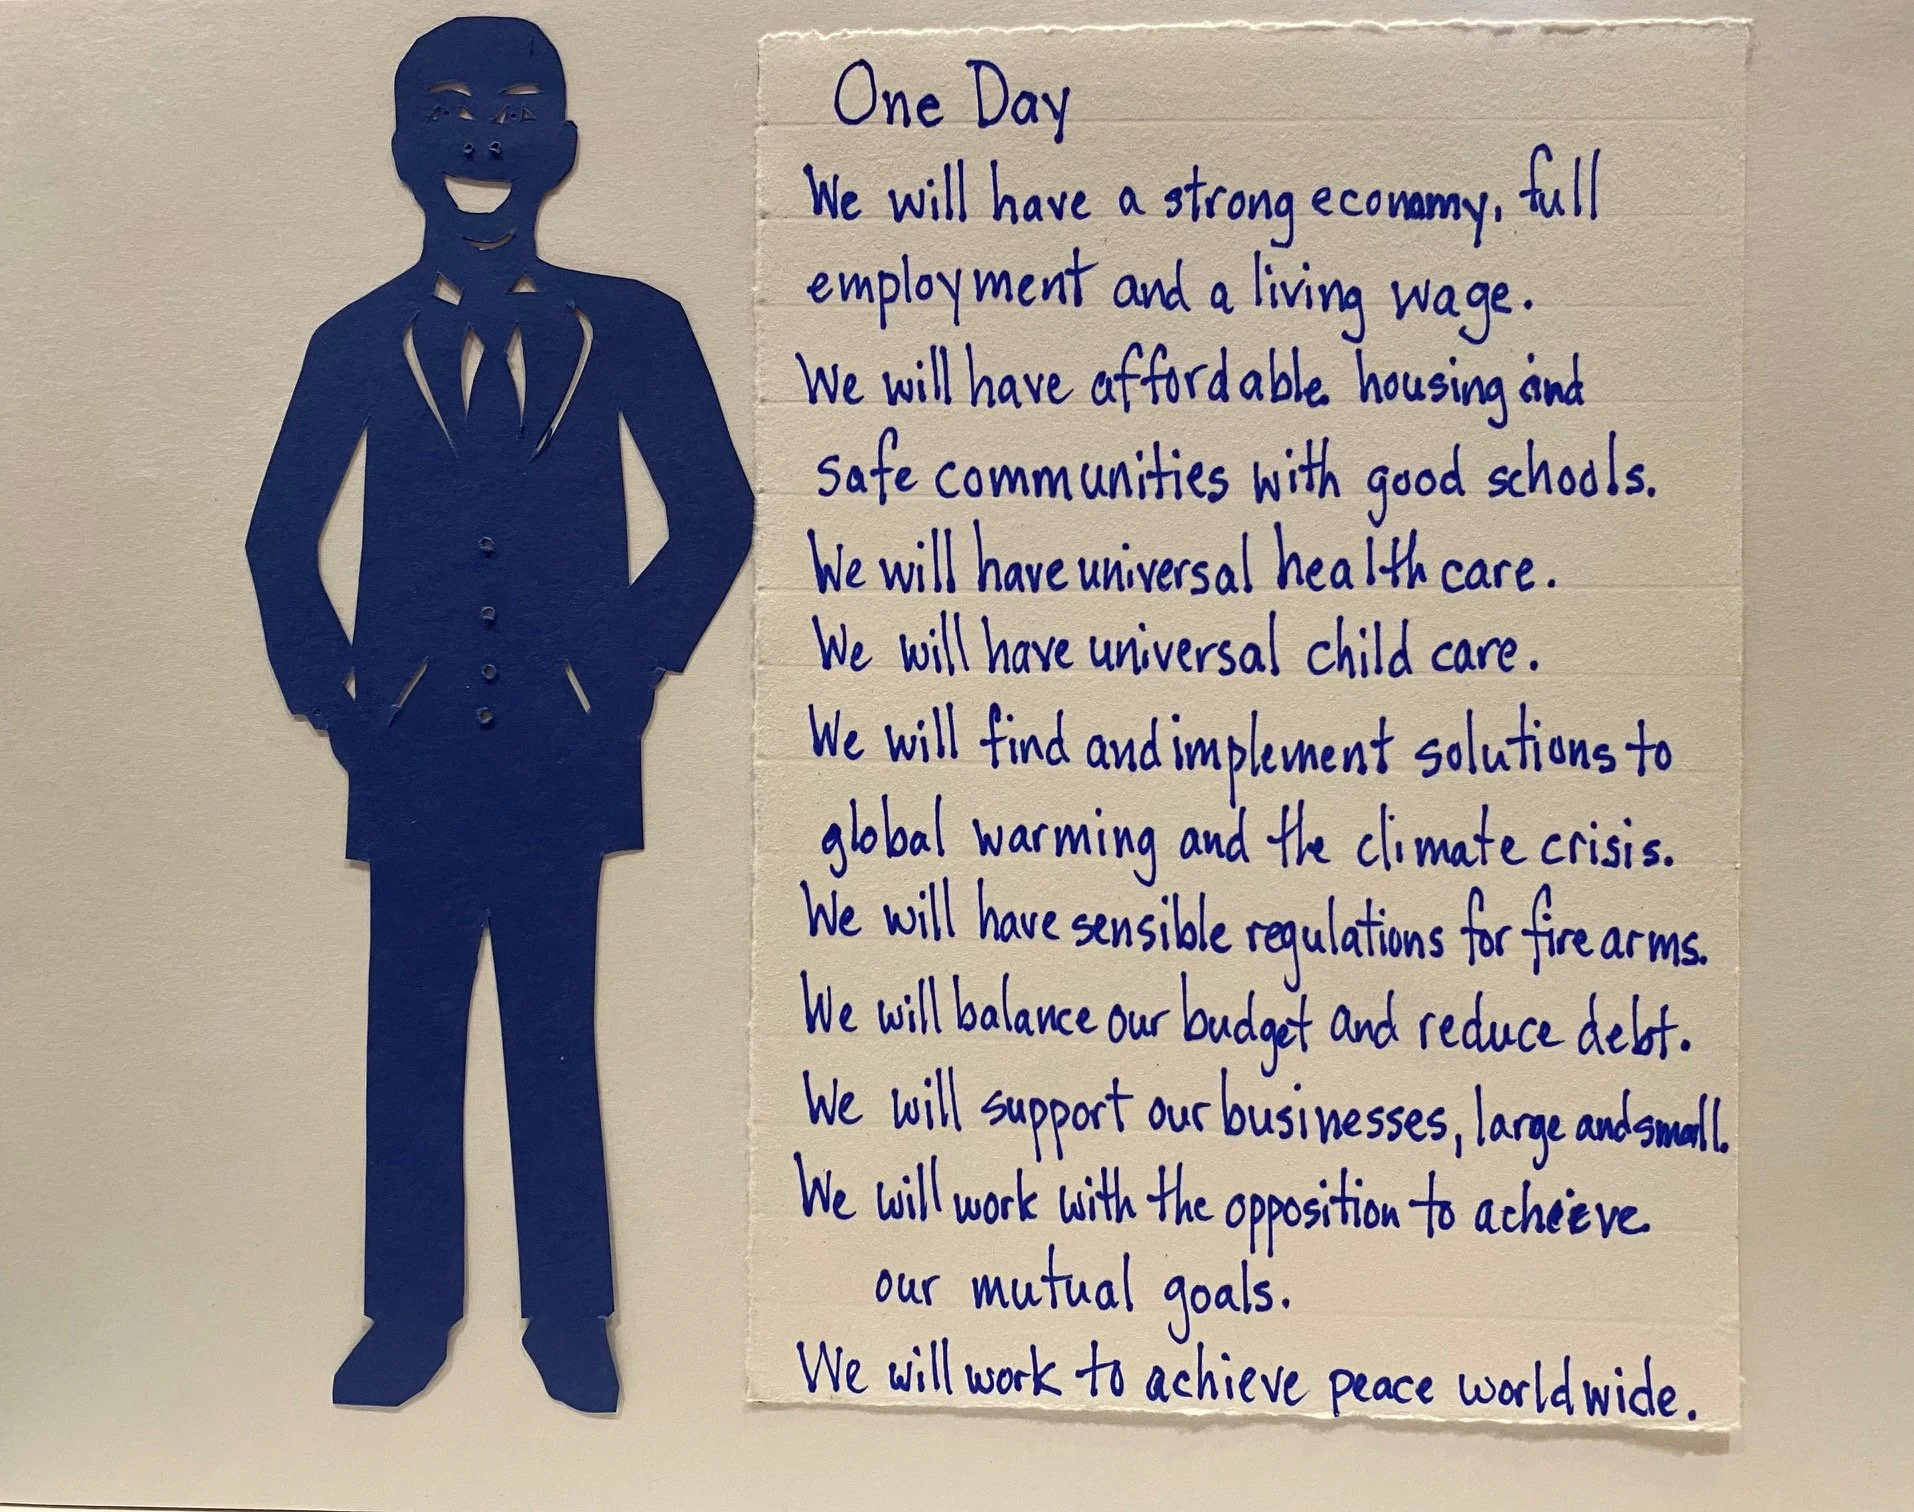 One Day
We will have a strong economy, full
employment and a living wage.
We will have affordable housing and
safe communities with good schools.
We will have universal health care.
We will have universal child care.
We will find and implement solutions to
global warming and the climate crisis.
We will have sensible regulations for firearms.
We will balance our budget and reduce debt.
We will support our businesses, large and small.
We will work with the opposition to acheive
our mutual goals.
We will work to achieve peace worldwide.